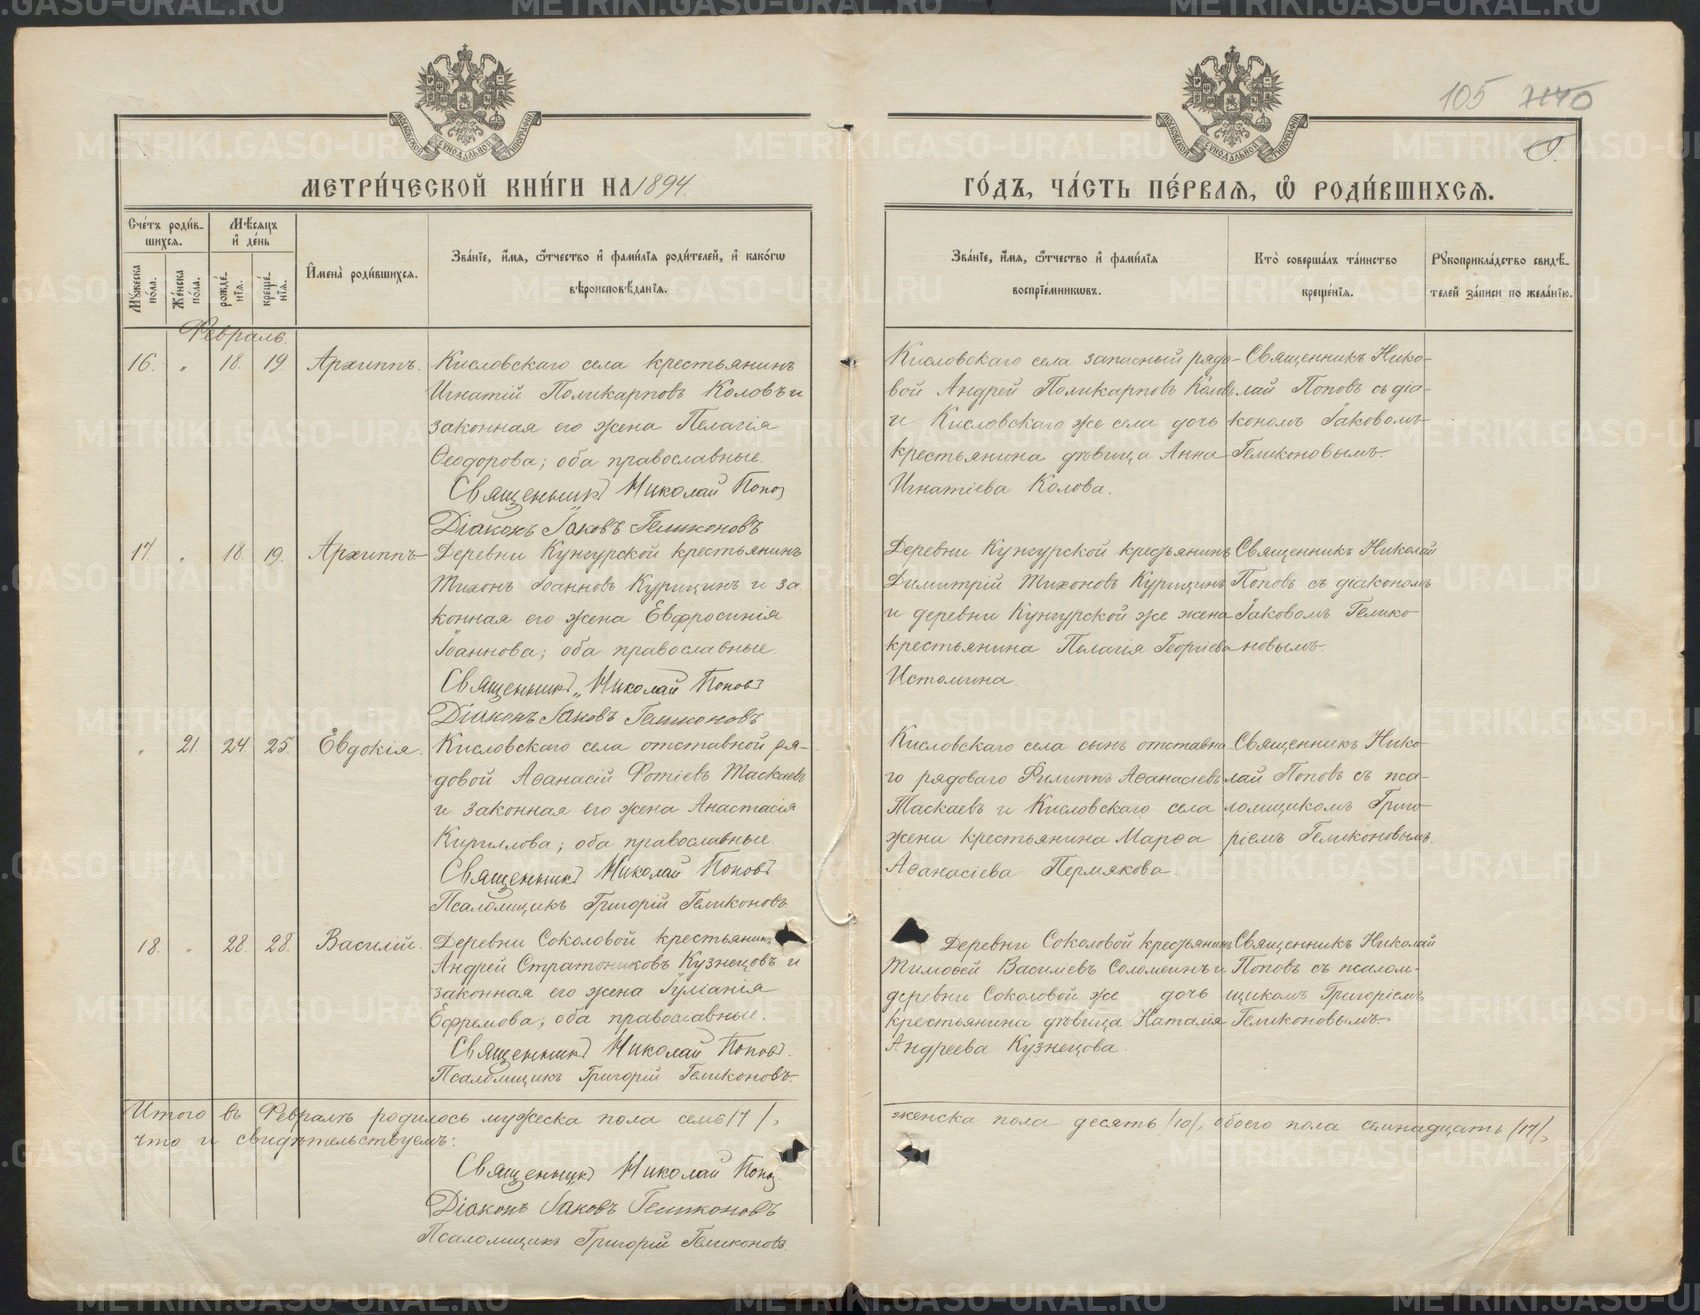 105
МЕТРИ́ЧЕСКОЙ КНИ́ГИ НА 1894.
ГО́ДЪ, ЧА́СТЬ ПЕ́РВАЯ, Ѡ҆ РОДИ́ВШИХСЯ.
Сче́тъ роди́в-
шихся.
Мꙋ́жеска по́ла.
Же́нска по́ла.
Мѣ́сяцъ
и҆ де́нь
рожде́-
нїя.
креще́-
нїя.
И҆мена̀ роди́вшихся.
Зва́нїе, и҆́мя, ѻ҆́тчество и҆ фами́лїя роди́телей, и҆ како́гѡ
вѣроисповѣ́данїя.
Зва́нїе, и҆́мя, ѻ҆́тчество и҆ фами́лїя
воспрїе́мникѡвъ.
Кто̀ соверша́лъ та́инство
креще́нїя.
Рꙋкоприкла́дство свидѣ́-
телей за́писи по жела́нїю.
Февраль.
16. „ 18. 19. Архиппъ.
Кисловскаго села крестьянинъ
Игнатій Поликарповъ Коловъ и
законная его жена Пелагія
Ѳеодорова; оба православные.
Священникъ Николай Попов
Діаконъ Іаковъ Геликоновъ
Кисловскаго села запасный рядо-
вой Андрей Поликарповъ Коловъ
и Кисловскаго же села дочь
крестьянина дѣвица Анна
Игнатіева Колова.
Священникъ Нико-
лай Поповъ съ діа-
кономъ Іаковомъ
Геликоновымъ.
17. „ 18. 19. Архиппъ
Деревни Кунгурской крестьянинъ
Тихонъ Іоанновъ Курицинъ и за
конная его жена Евфросинія
Іоаннова; оба православные.
Священникъ Николай Поповъ
Діаконъ Іаковъ Геликоновъ
Деревни Кунгурской крестьянинъ
Димитрій Тихоновъ Курицинъ
и деревни Кунгурской же жена
крестьянина Пелагія Георгіева
Истомина.
Священникъ Николай
Поповъ съ діакономъ
Іаковомъ Гелико-
новымъ.
„ 21. 24. 25. Евдокія.
Кисловскаго села отставной ря-
довой Аѳанасій Фотіевъ Таскаевъ
и законная его жена Анастасія
Кириллова; оба православные.
Священникъ Николай Поповъ
Псаломщикъ Григорій Геликоновъ
Кисловскаго села сынъ отставна
го рядоваго Филиппъ Аѳанасіевъ
Таскаевъ и Кисловскаго села
жена крестьянина Марѳа
Аѳанасіева Пермякова.
Священникъ Нико-
лай Поповъ съ пса-
ломщикомъ Григо-
ріемъ Геликоновымъ.
18. „ 28. 28. Василій.
Деревни Соколовой крестьянинъ
Андрей Стратониковъ Кузнецовъ и
законная его жена Іуліанія
Ефремова; оба православные.
Священникъ Николай Поповъ.
Псаломщикъ Григорій Геликоновъ.
Деревни Соколовой крестьянинъ
Тимоѳей Василіевъ Соломеинъ и
деревни Соколовой же дочь
крестьянина дѣвица Наталія
Андреева Кузнецова.
Священникъ Николай
Поповъ съ псалом-
щикомъ Григоріемъ
Геликоновымъ
Итого въ Февралѣ родилось мужеска пола семь /7/,
женска пола десять /10/, обоего пола семнадцать /17/,
что и свидѣтельствуемъ:
Священникъ Николай Попов
Діаконъ Іаковъ Геликоновъ
Псаломщикъ Григорій Геликоновъ.
METRIKI.GASO-URAL.RU